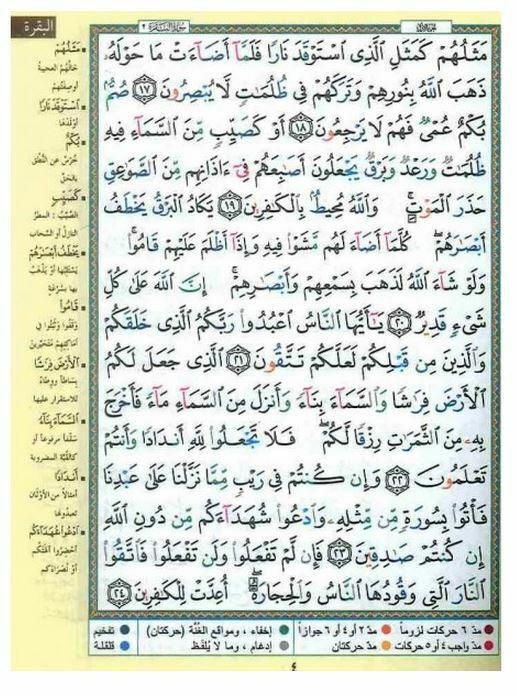 البقرة
سورة البقرة ٢
الجزء الأول
مَثَلُهُمْ كَمَثَلِ ٱلَّذِى ٱسْتَوْقَدَ نَارًا فَلَمَّآ أَضَآءَتْ مَا حَوْلَهُۥ
ذَهَبَ ٱللَّهُ بِنُورِهِمْ وَتَرَكَهُمْ فِى ظُلُمَٰتٍ لَّا يُبْصِرُونَ ١٧ صُمٌّۢ
بُكْمٌ عُمْىٌ فَهُمْ لَا يَرْجِعُونَ ١٨ أَوْ كَصَيِّبٍ مِّنَ ٱلسَّمَآءِ فِيهِ
ظُلُمَٰتٌ وَرَعْدٌ وَبَرْقٌ يَجْعَلُونَ أَصَٰبِعَهُمْ فِىٓ ءَاذَانِهِم مِّنَ ٱلصَّوَٰعِقِ
حَذَرَ ٱلْمَوْتِ ۚ وَٱللَّهُ مُحِيطٌۢ بِٱلْكَٰفِرِينَ ١٩ يَكَادُ ٱلْبَرْقُ يَخْطَفُ
أَبْصَٰرَهُمْ ۖ كُلَّمَآ أَضَآءَ لَهُم مَّشَوْا۟ فِيهِ وَإِذَآ أَظْلَمَ عَلَيْهِمْ قَامُوا۟ ۚ
وَلَوْ شَآءَ ٱللَّهُ لَذَهَبَ بِسَمْعِهِمْ وَأَبْصَٰرِهِمْ ۚ إِنَّ ٱللَّهَ عَلَىٰ كُلِّ
شَىْءٍ قَدِيرٌ ٢٠ يَٰٓأَيُّهَا ٱلنَّاسُ ٱعْبُدُوا۟ رَبَّكُمُ ٱلَّذِى خَلَقَكُمْ
وَٱلَّذِينَ مِن قَبْلِكُمْ لَعَلَّكُمْ تَتَّقُونَ ٢١ ٱلَّذِى جَعَلَ لَكُمُ
ٱلْأَرْضَ فِرَٰشًا وَٱلسَّمَآءَ بِنَآءً وَأَنزَلَ مِنَ ٱلسَّمَآءِ مَآءً فَأَخْرَجَ
بِهِۦ مِنَ ٱلثَّمَرَٰتِ رِزْقًا لَّكُمْ ۖ فَلَا تَجْعَلُوا۟ لِلَّهِ أَندَادًا وَأَنتُمْ
تَعْلَمُونَ ٢٢ وَإِن كُنتُمْ فِى رَيْبٍ مِّمَّا نَزَّلْنَا عَلَىٰ عَبْدِنَا
فَأْتُوا۟ بِسُورَةٍ مِّن مِّثْلِهِۦ وَٱدْعُوا۟ شُهَدَآءَكُم مِّن دُونِ ٱللَّهِ
إِن كُنتُمْ صَٰدِقِينَ ٢٣ فَإِن لَّمْ تَفْعَلُوا۟ وَلَن تَفْعَلُوا۟ فَٱتَّقُوا۟
ٱلنَّارَ ٱلَّتِى وَقُودُهَا ٱلنَّاسُ وَٱلْحِجَارَةُ ۖ أُعِدَّتْ لِلْكَٰفِرِينَ ٢٤
مَثَلُهُمْ
حالُهُم العجيبة
أو صِفَتُهُم
اسْتَوْقَدَ نَارًا
أوْقَدَها
بُكْمٌ
خُرْسٌ عن النُّطْقِ
بالحَقّ
كَصَيِّبٍ
الصَّيِّبُ : المطرُ
النازلُ أو السَّحاب
يَخْطَفُ أَبْصَارَهُمْ
يَسْتَلِبُها أو يَذْهَبُ
بها بسُرْعَةٍ
قَامُوا
وَقَفُوا وثَبَتُوا في
أماكِنِهِمْ مُتَحَيِّرين
الأَرْضَ فِرَاشًا
بِسَاطًا ووِطَاءً
للاستقرارِ عليها
السَّمَاءَ بِنَاءً
سَقْفًا مرفوعًا أو
كالقُبَّةِ المضروبة
أَنْدَادًا
أمثالاً من الأوْثان
تعبدُونَها
ادْعُوا شُهَدَاءَكُمْ
أحضِرُوا آلهَتَكُم
أو نُصَراءَكم
مدّ ٦ حركات لزوماً
مدّ ٢ أو ٤ أو ٦ جوازاً
إخفاء، ومواقع الغُنَّة (حركتان)
تفخيم
مدّ واجب ٤ أو ٥ حركات
مدّ حركتان
إدغام، وما لا يُلفَظ
قلقلة
٤